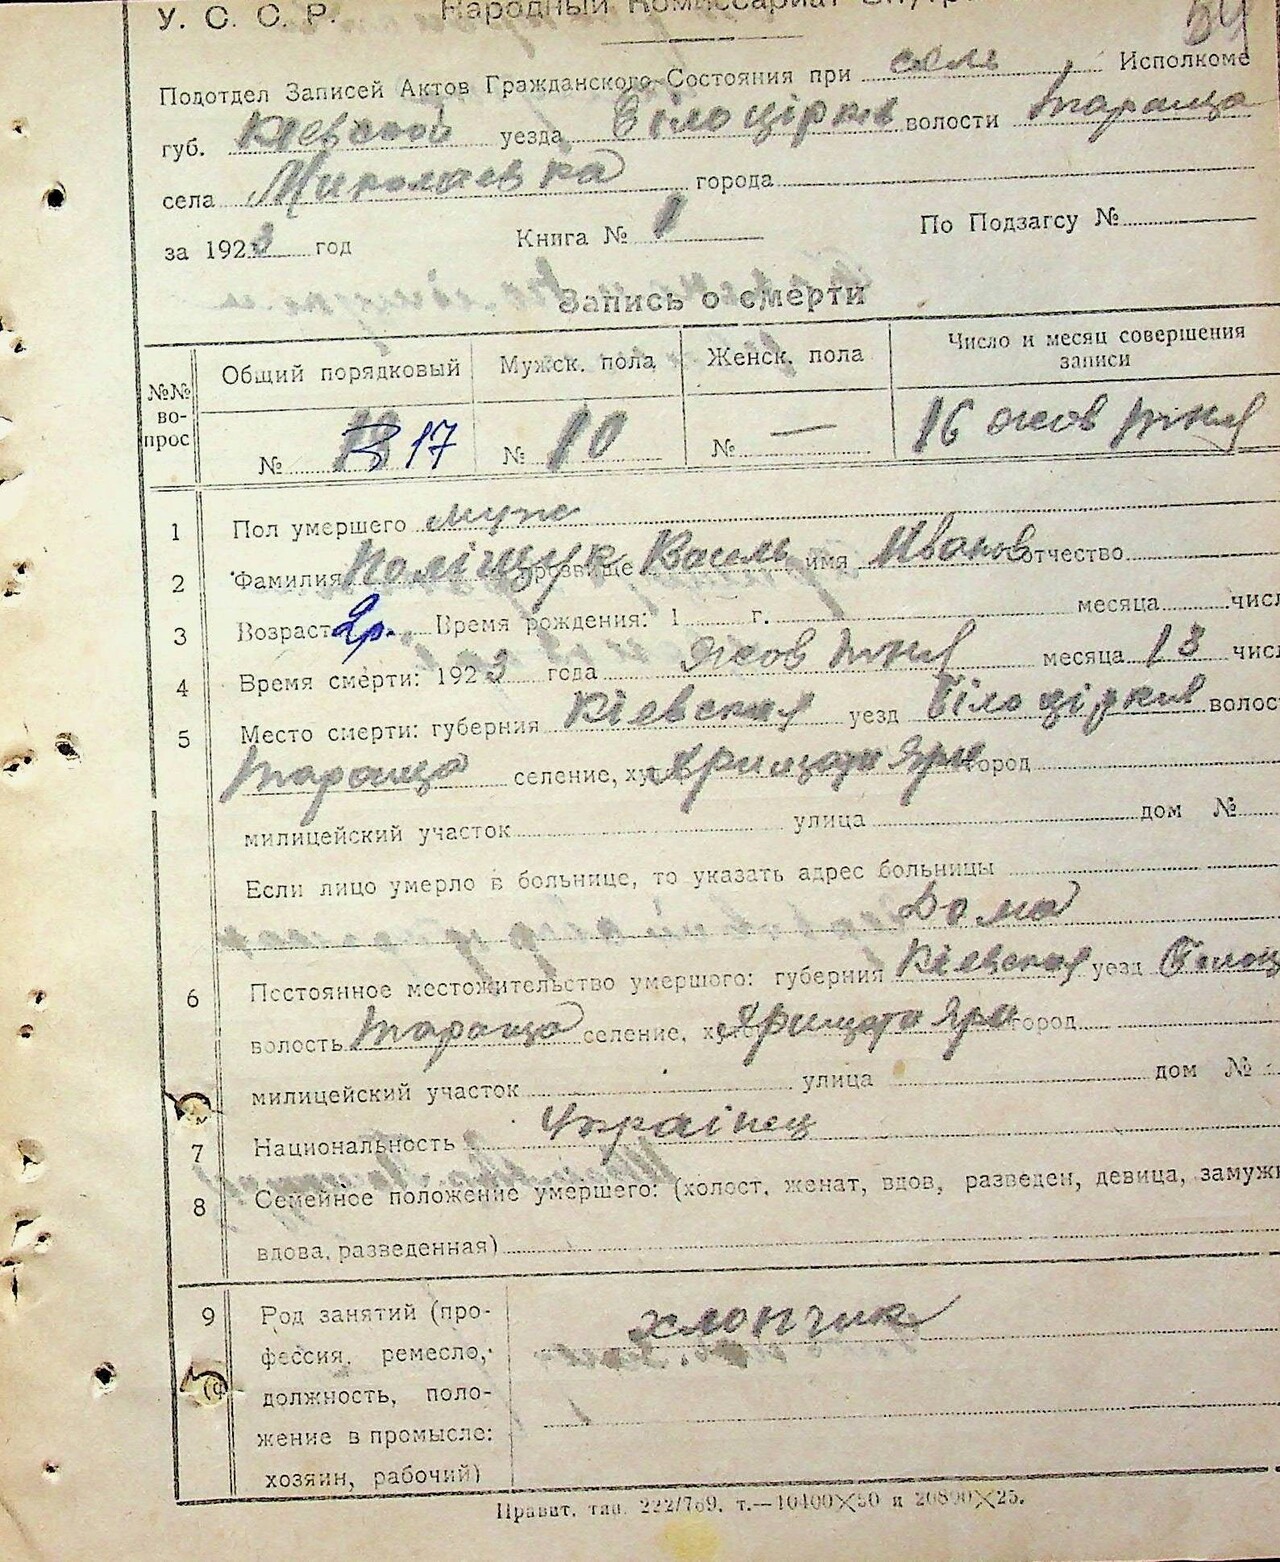 У. С. С. Р. Народный Комиссариат Внутр
54
Подотдел Записей Актов Гражданского Состояния при селі Исполкоме
губ. Кіевской уезда Білоцірків волости Тараща
села Миколаевка города
за 1923 год Книга № 1 По Подзагсу №
Запись о смерти
№№ вопрос Общий порядковый Мужск. пола Женск. пола Число и месяц совершения записи
№ 17 № 10 № — 16 жовтня
1 Пол умершего муж
2 Фамилия Поліщук прозвище Василь имя Иванов отчество
3 Возраст 2р. Время рождения: 1 г. месяца числ
4 Время смерти: 1923 года жовтня месяца 13 числ
5 Место смерти: губерния Кіевская уезд Білоцірків волост
Тараща селение, хут Яри город
милицейский участок улица дом №
Если лицо умерло в больнице, то указать адрес больницы
Дома
6 Постоянное местожительство умершого: губерния Кіевская уезд Білоц
волость Тараща селение, хутор Яри город
милицейский участок улица дом №
7 Национальность Українец
8 Семейное положение умершего: (холост, женат, вдов, разведен, девица, замужн
вдова, разведенная)
9 Род занятий (про-
хлопчик
фессия, ремесло,
должность, поло-
жение в промысле:
хозяин, рабочий)
Правит. тип. 222/769. т.—10400×50 и 20800×25.